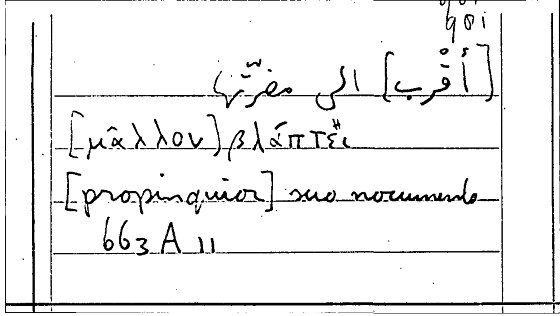 901
[أَقْرب] الى مضرّتها
[μᾶλλον] βλάπτει
[propinquior] suo nocumento
663 A 11